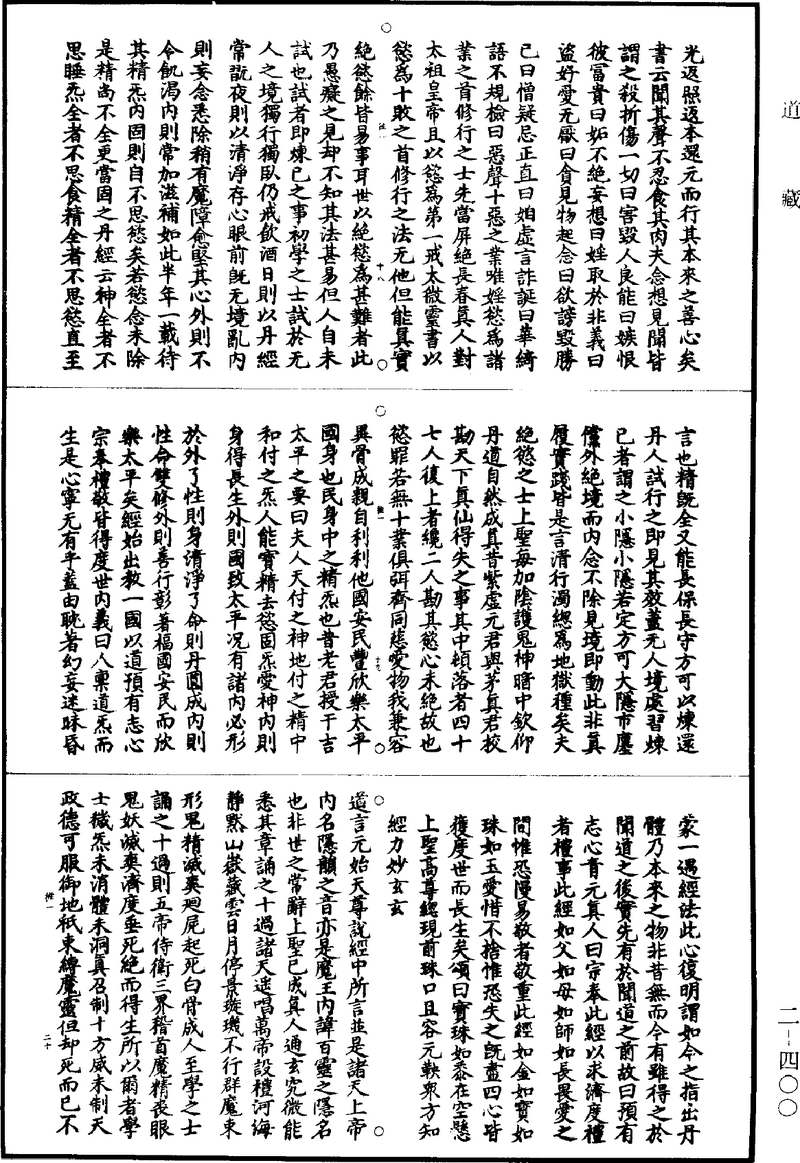 道藏
光返照返本還元而行其本來之善心矣
書云聞其聲不忍食其肉夫念想見聞皆
謂之殺折傷一切曰害毀人良能曰嫉恨
彼富貴曰妬不絶妄想曰婬取於非義曰
盜好愛无厭曰貪見物起念曰欲謗毀勝
己曰憎疑忌正直曰媢虛言詐誕曰華綺
語不規檢曰惡聲十惡之業唯婬慾爲諸
業之首修行之士先當屏絶長春真人對
太祖皇帝且以慾爲第一戒太微靈書以
慾爲十敗之首修行之法无他但能真實
絶慾餘皆易事耳世以絶慾爲甚難者此
乃愚癡之見却不知其法甚易但人自未
試也試者即煉己之事初學之士試於无
人之境獨行獨臥仍戒飲酒日則以丹經
常翫夜則以清淨存心眼前旣无境亂内
則妄念悉除稍有魔障愈堅其心外則不
令飢渴内則常加滋補如此半年一載待
其精炁内固則自不思慾矣若慾念未除
是精尚不全更當固之丹經云神全者不
思睡炁全者不思食精全者不思慾直至
言也精旣全又能長保長守方可以煉還
丹人試行之即見其效蓋无人境處習煉
己者謂之小隱小隱若定方可大隱市鄽
儻外絶境而内念不除見境即動此非真
履實踐皆是言清行濁總爲地獄種矣夫
絶慾之士上聖每加陰護鬼神暗中欽仰
丹道自然成真昔紫虛元君與茅真君校
勘天下真仙得失之事其中頓落者四十
七人復上者纔二人勘其慾心未絶故也
慾罪若無十業俱弭齊同慈愛物我兼容
異骨成親自利利他國安民豐欣樂太平
國身也民身中之精炁也昔老君授于吉
太平之要曰夫人天付之神地付之精中
和付之炁人能寶精去慾固炁愛神内則
身得長生外則國致太平况有諸内必形
於外了性則身清淨了命則丹圓成内則
性命雙修外則善行彰著福國安民而欣
樂太平矣經始出教一國以道預有志心
宗奉禮敬皆得度世内義曰人稟道炁而
生是心寧元有平蓋由耽著幻妄迷昧昏
蒙一遇經法此心復明謂如今之指出丹
體乃本來之物非昔無而今有雖得之於
聞道之後實先有於聞道之前故曰預有
志心青元真人曰宗奉此經以求濟度禮
者禮事此經如父如母如師如長畏愛之
間惟恐慢易敬者敬重此經如金如寶如
珠如玉愛惜不捨惟恐失之旣盡四心皆
獲度世而長生矣頌曰寶珠如黍在空懸
上聖高尊總現前珠口且容元鞅衆方知
經力妙玄玄
道言元始天尊說經中所言並是諸天上帝
内名隱韻之音亦是魔王内諱百靈之隱名
也非世之常辭上聖已成真人通玄究微能
悉其章誦之十過諸天遥唱萬帝設禮河海
靜默山嶽藏雲日月停景璇璣不行群魔束
形鬼精滅爽迴屍起死白骨成人至學之士
誦之十過則五帝侍衛三界稽首魔精喪眼
鬼妖滅爽濟度垂死絶而得生所以爾者學
士穢炁未消體未洞真召制十方威未制天
政德可服御地祇束縛魔靈但却死而已不
二-四〇〇